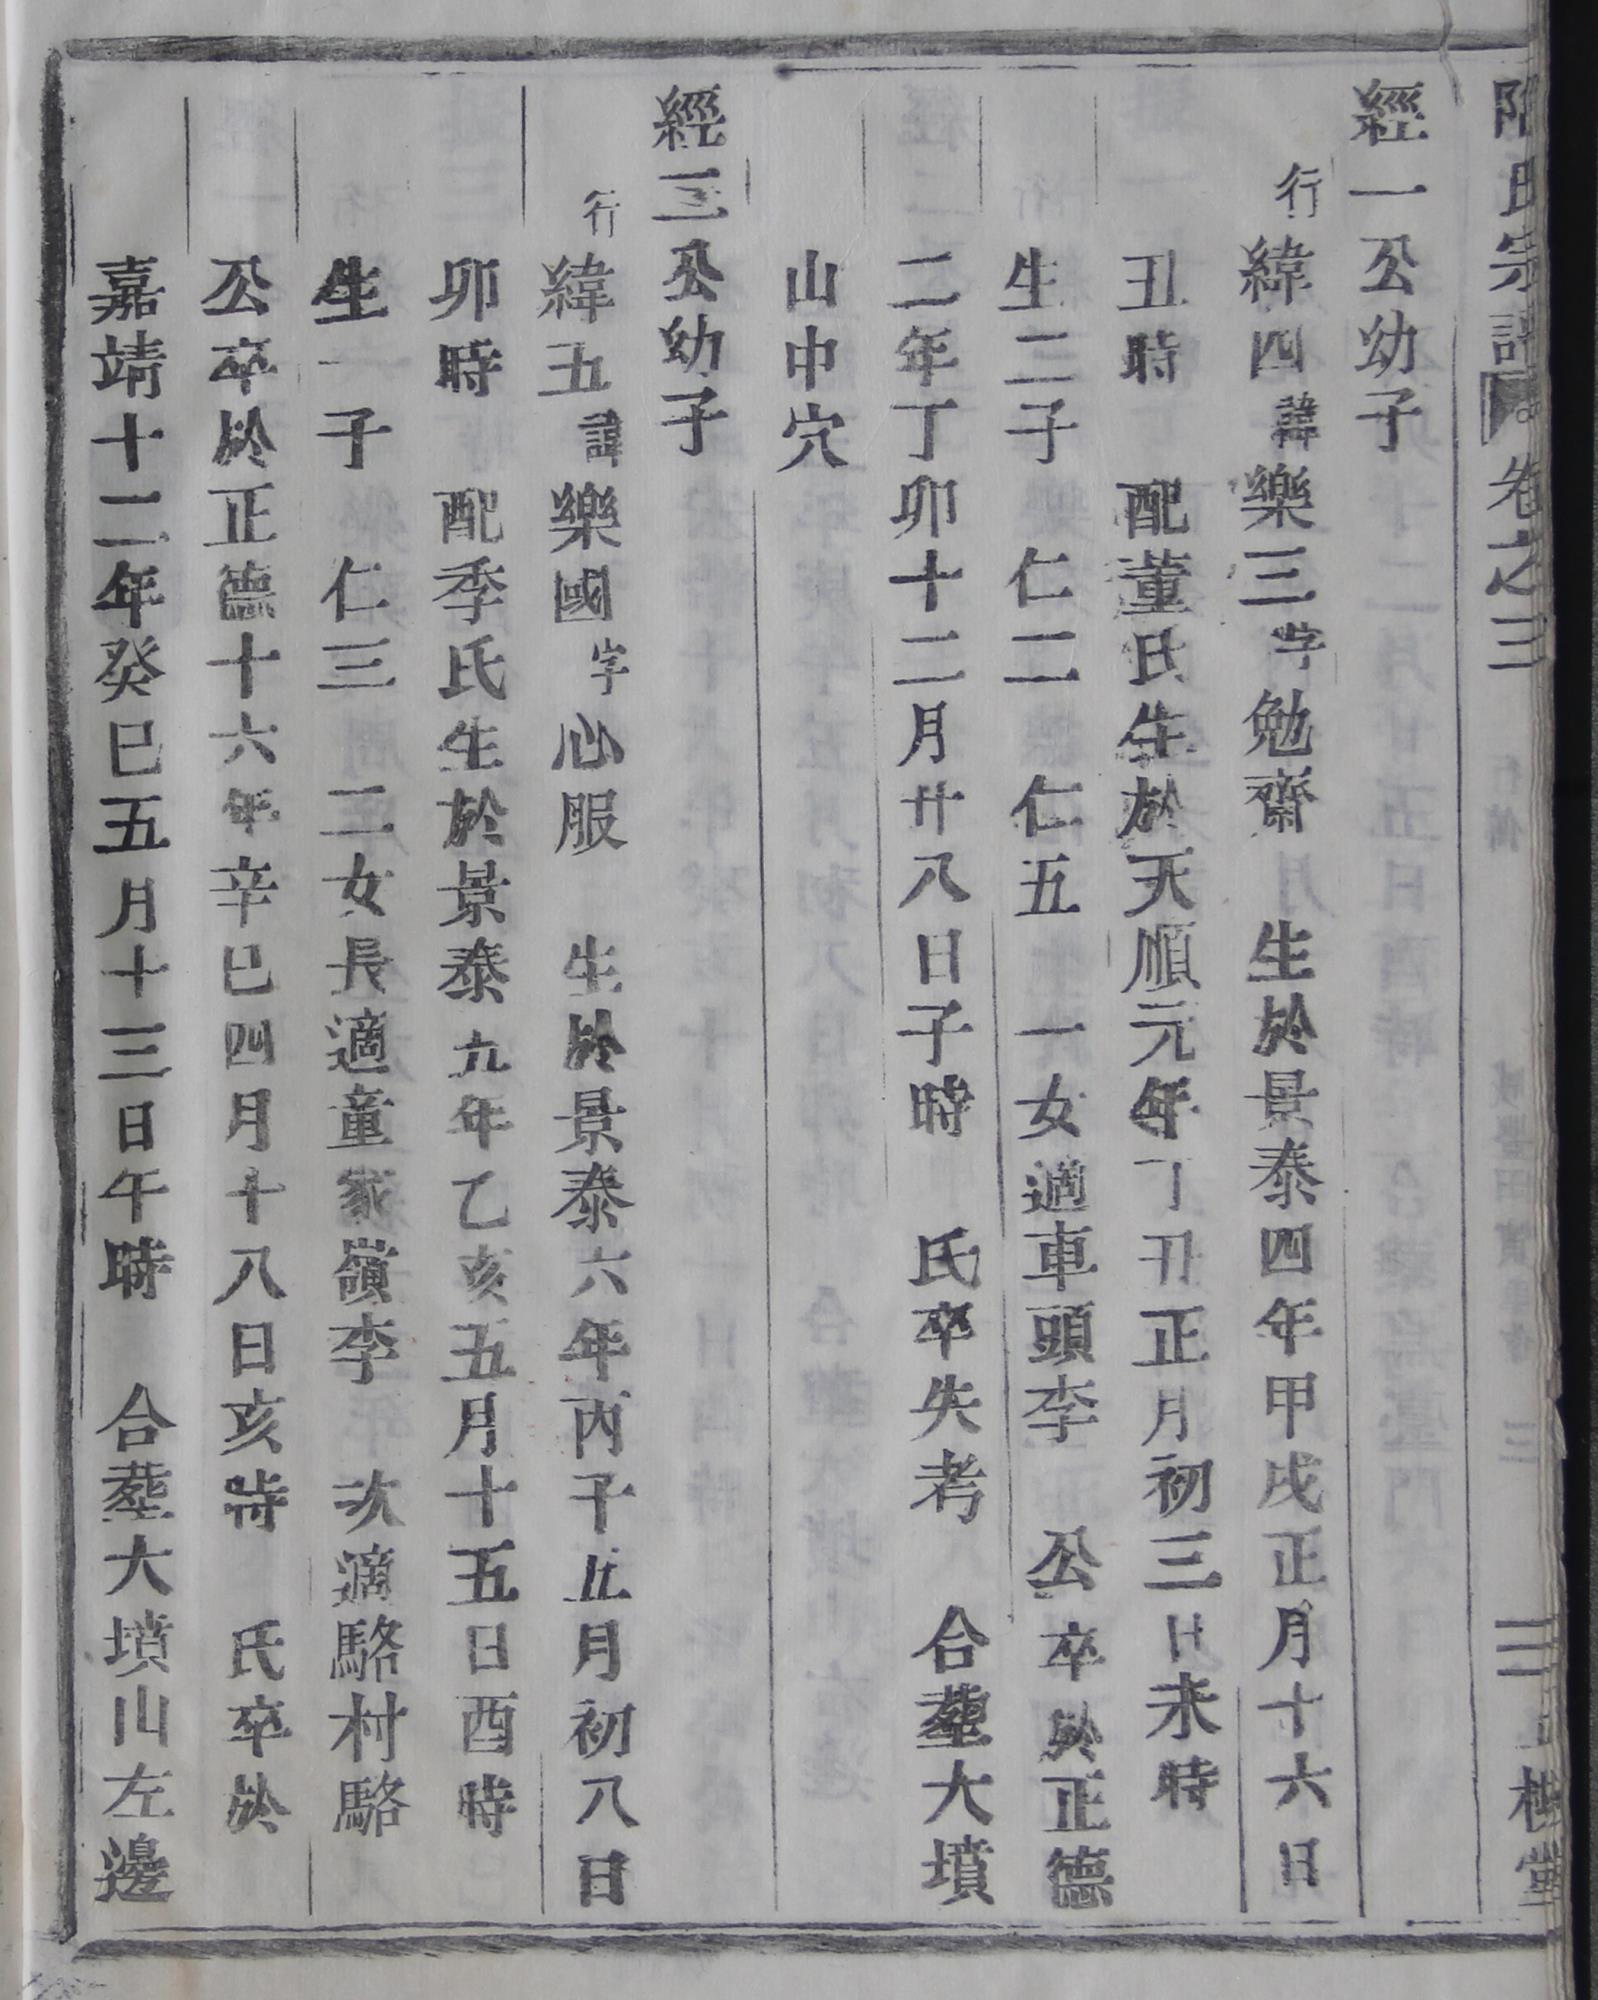 氏宗譜 卷之三 三
經一公幼子
行緯四諱樂三字勉齋 生於景泰四年甲戌正月十六日
丑時 配董氏生於天順元年丁丑正月初三日未時
生二子 仁二 仁五 一女適車頭李 公卒於正德
二年丁卯十二月廿八日子時 氏卒失考 合塟大墳
山中穴
經三公幼子
行緯五諱樂國字心服 生於景泰六年丙子五月初八日
卯時 配季氏生於景泰九年乙亥五月十五日酉時
生一子 仁三 二女長適童家嶺李 次適駱村駱
公卒於正德十六年辛巳四月十八日亥時 氏卒於
嘉靖十二年癸巳五月十三日午時 合塟大墳山左邊